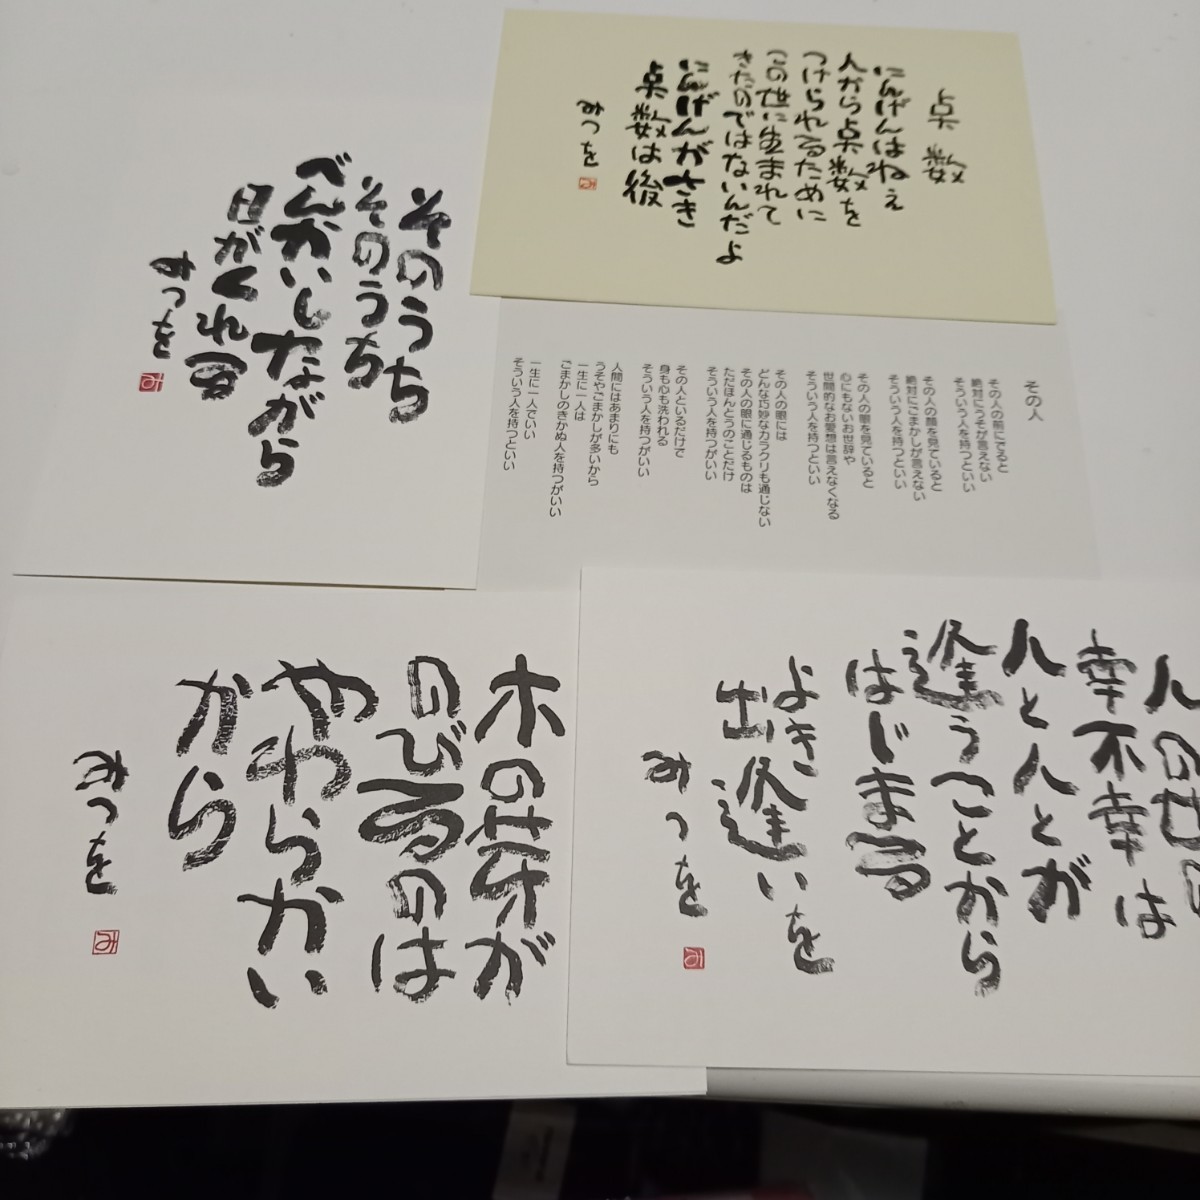 点数
にんげんはねぇ
人から点数を
つけられるために
この世に生まれて
きたのではないんだよ
にんげんがさき
点数は後
みつを
そのうち
そのうち
べんかいしながら
日がくれる
みつを
その人
その人の前にでると
絶対にうそが言えない
そういう人を持つといい
その人の顔を見ていると
絶対にごまかしが言えない
そういう人を持つといい
その人の眼を見ていると
心にもないお世辞や
世間的なお愛想は言えなくなる
そういう人を持つといい
その人の眼には
どんな巧妙なカラクリも通じない
その人の眼に通じるものは
ただほんとうのことだけ
そういう人を持つがいい
その人といるだけで
身も心も洗われる
そういう人を持つがいい
人間にはあまりにも
うそやごまかしが多いから
一生に一人は
ごまかしのきかぬ人を持つがいい
一生に一人でいい
そういう人を持つといい
人の世の
幸不幸は
人と人とが
逢うことから
はじまる
よき
出逢いを
みつを
木の芽が
のびるのは
やわらかい
から
みつを